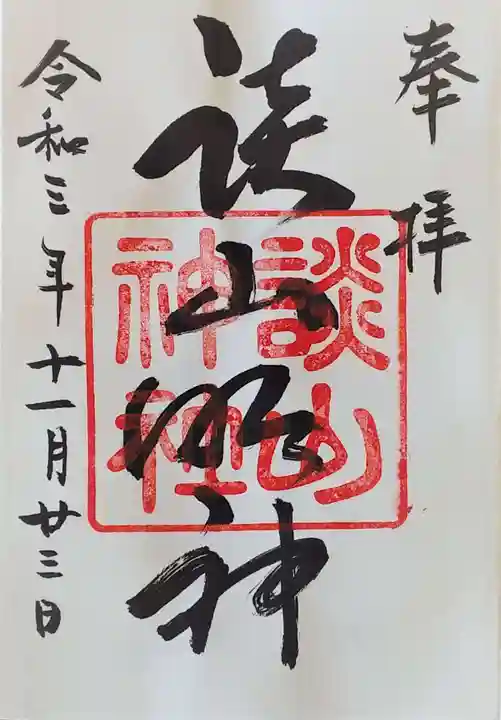 奉拝
談山明神
談山神社
令和三年十一月廿三日